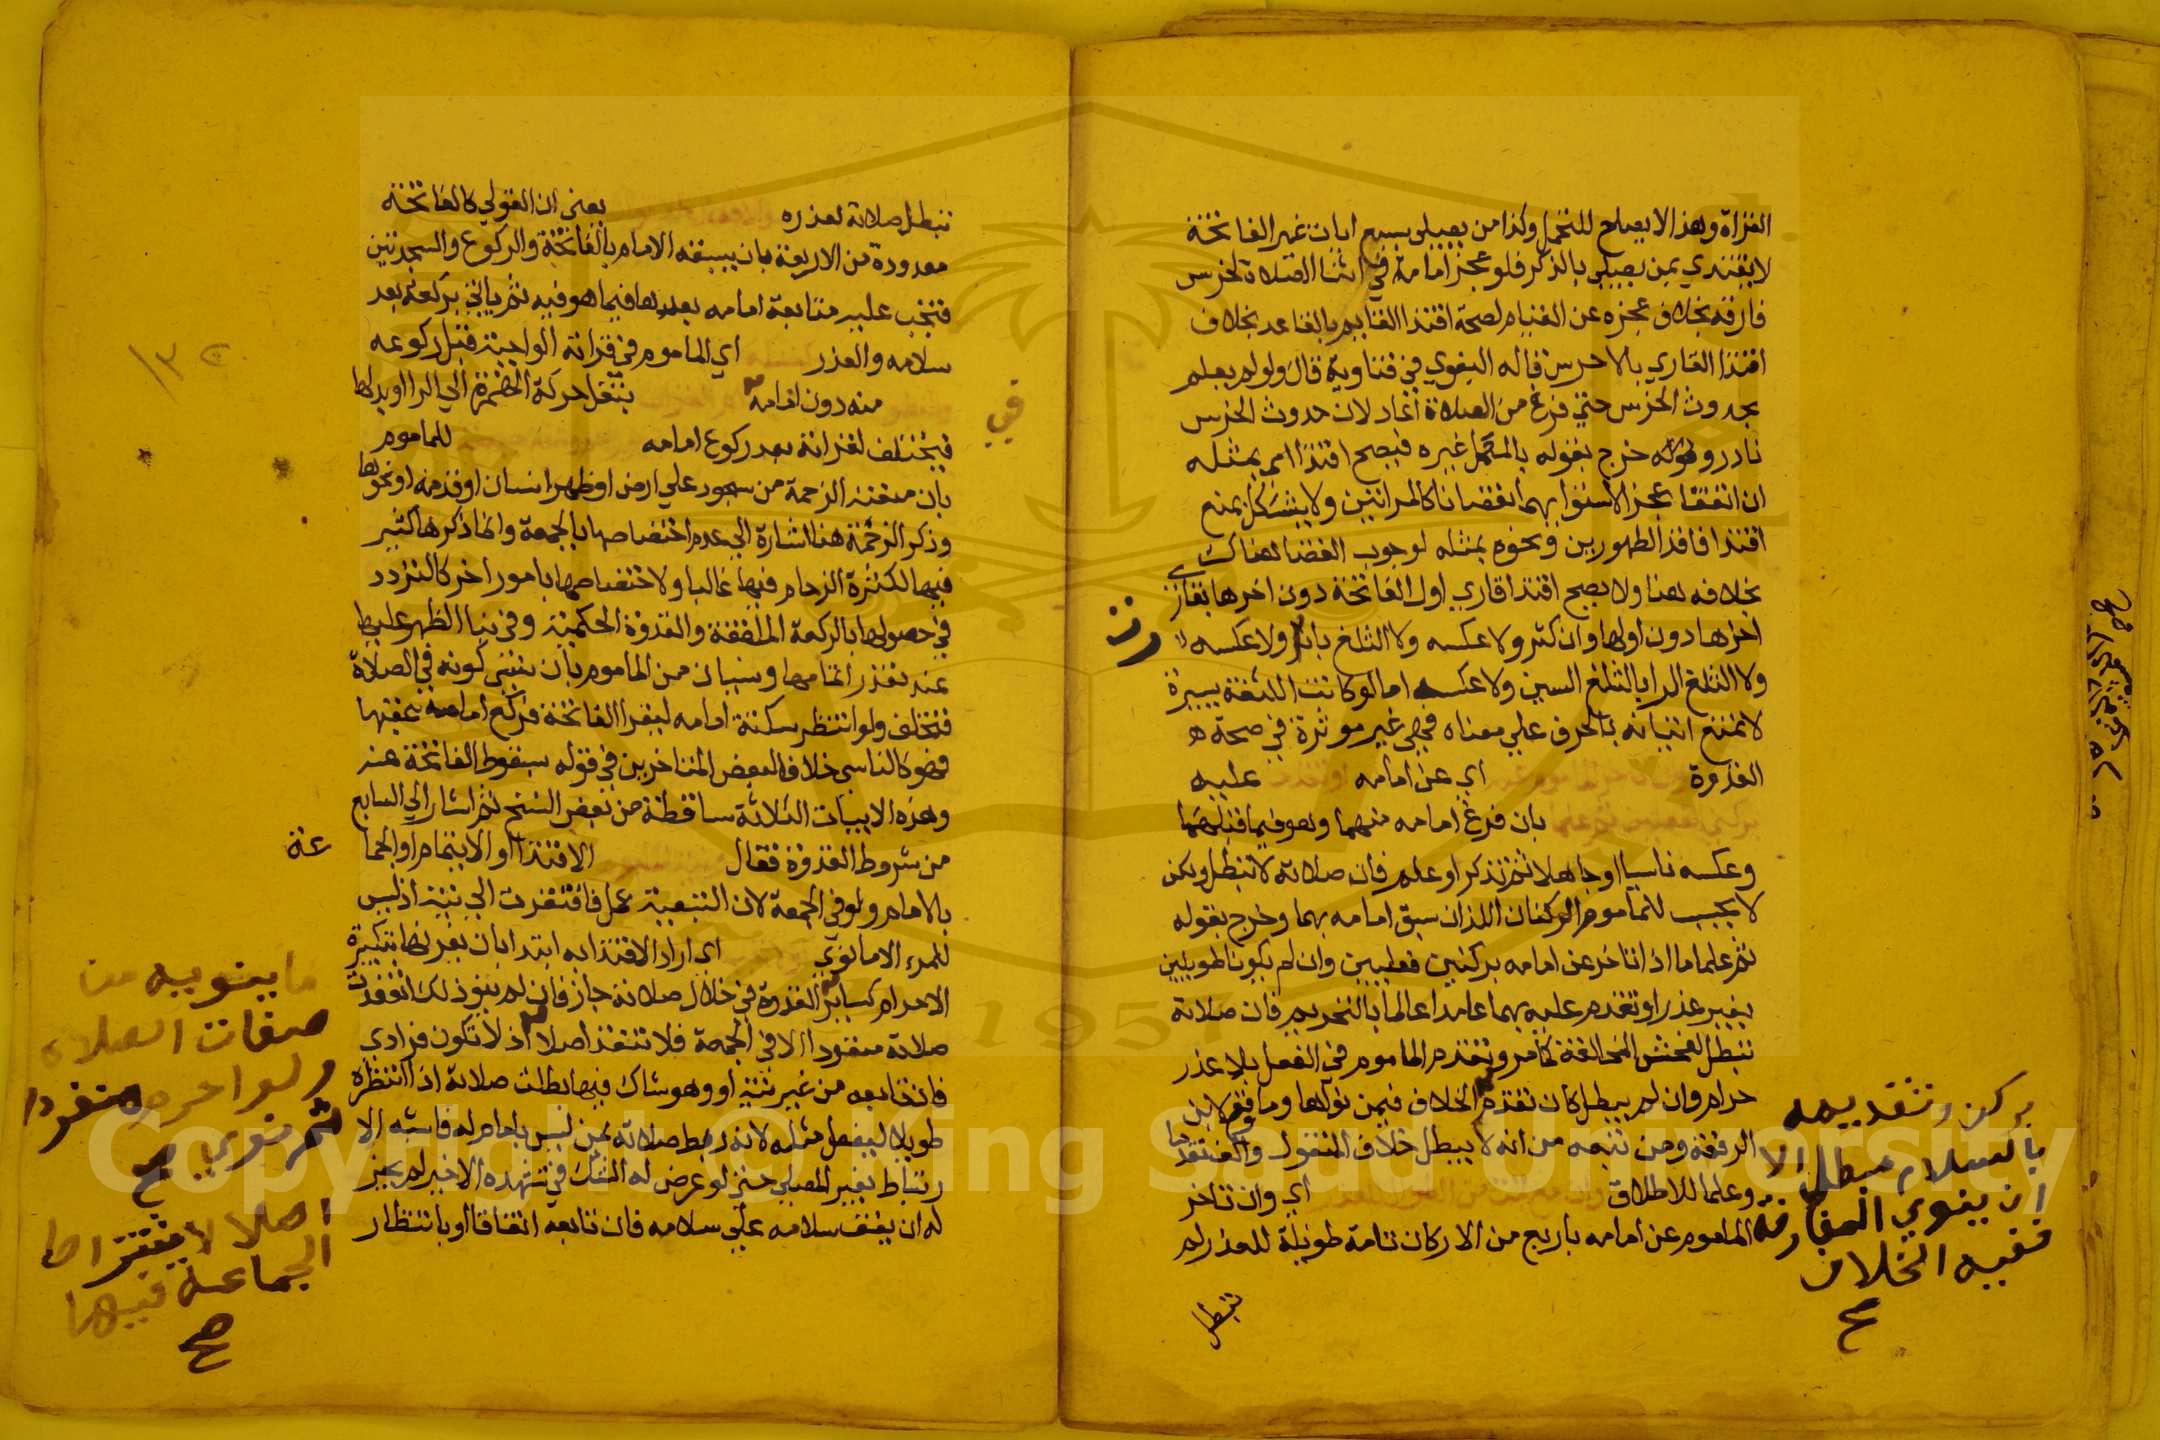 القراة وهذا لا يصلح للتحمل وكذا من يصلي بسبع ايات غير الفاتحة
لا يقتدي بمن يصلي بالذكر فلو عجز امامه في اثنا الصلاة لخرس
فارقه بخلاف عجزه عن القيام لصحة اقتدا القايم بالقاعد بخلاف
اقتدا القاري بالاخرس قاله البغوي في فتاويه قال ولو لم يعلم
بحدوث الخرس حتي فرغ من الصلاة اعاد لان حدوث الخرس
نادر وقوله خرج بقوله بالمكمل غيره فيصح اقتدا امي بمثله
ان اتفقا عجزا لاستوا بهما نقصانا كالمراتين ولا يشكل بمنع
اقتدا فاقد الطهورين ونحوه بمثله لوجوب القضا هناك
بخلافه هنا ولا يصح اقتدا قاري اول الفاتحة دون اخرها بقاري
اخرها دون اولها وان كثر ولا عكسه ولا الثلغ بارت ولا عكسه
رت
ولا الثلغ الرا بالثلغ السين ولا عكسه اما لو كانت اللثغة يسيرة
لا تمنع اتيانه بالحرف علي معناه فهي غير موثرة في صحة
القدوة اي عن امامه عليه
بان فرغ امامه منهما وهو فيما قبلهما
وعكسه ناسيا او جاهلا ثم تذكر او علم فان صلاته لا تبطل ولكن
لا يحسب للماموم الركنان اللذان سبق امامه بهما وخرج بقوله
ثم علما ما اذا تاخر عن امامه بركنين فعليين وان لم يكونا طويلين
بغير عذر او تقدم عليه بهما عامدا عالما بالتحريم فان صلاته
تبطل لفحش المخالفة كما مر وتقدم الماموم في الفعل بلا عذر
حرام وان لم يبطل كان تقدم الخلاف فيمن نواها وما وقع لابن
الرفعة ومن تبعه من انه لا يبطل خلاف المنقول والمعتمد
وعلما للاطلاق اي وان تاخر
الماموم عن امامه باربع من الاركان تامة طويلة للعذر لم
تبطل
بركن وتقديمه
بالسلام مبطل الا
ان ينوي المفارقة
ففيه الخلاف
صح
تبطل صلاته لعذره يعني ان القولي كالفاتحة
معدودة من الاربعة بان يسبقه الامام بالفاتحة والركوع والسجدتين
فتجب عليه متابعة امامه بعدها فيما هو فيه ثم ياتي بركعة بعد
سلامه والعذر اي الماموم في قراته الواجبة قبل ركوعه
منه دون امامه بنقل حركة الهمزة الي الرا او بدلها
فيتخلف لقراته بعد ركوع امامه للماموم
بان منعته الزحمة من سجود علي ارض او ظهر انسان او قدمه او نحوها
وذكر الزحمة هنا اشارة الي عدم اختصاصها بالجمعة وانما ذكرها كثير
فيها لكثرة الزحام فيها غالبا ولاختصاصها بامور اخر كالتردد
في حصولها بالركعة الملفقة والقدوة الحكمية وفي بنا الظهر عليها
عند تعذر اتمامها ونسيان من الماموم بان نسي كونه في الصلاة
فتخلف ولو انتظر سكتة امامه ليقرا الفاتحة فركع امامه عقبها
فهو كالناسي خلافا لبعض المتاخرين في قوله بسقوط الفاتحة عنه
وهذه الابيات الثلاثة ساقطة من بعض النسخ ثم اشار الي السابع
من شروط القدوة فقال الاقتدا او الايتمام او الجماعة
بالامام ولو في الجمعة لان التبعية عمل فافتقرت الي نية اذ ليس
للمرء الا ما نوي اي اراد الاقتدا به ابتدا بان يقرنها بتكبيرة
الاحرام كساير القدوة في خلال صلاته جاز فان لم ينو ذلك انعقدت
صلاته منفردا الا في الجمعة فلا تنعقد اصلا اذ لا تكون فرادي
فان تابعه من غير نية او وهو شاك فيها بطلت صلاته اذا انتظره
طويلا ليفعل مثله لانه ربط صلاته بمن ليس بامام له فاشبه الا
رتباط بغير المصلي حتي لو عرض له الشك في تشهده الاخير لم يجز
له ان يقف سلامه علي سلامه فان تابعه اتفاقا او بانتظار
ما ينويه من
صفات الصلاه
ولو احرم منفردا
ثم نوي صح
اصلا لا شتراط
الجماعة فيها
صح
Copyright © King Saud University
1957